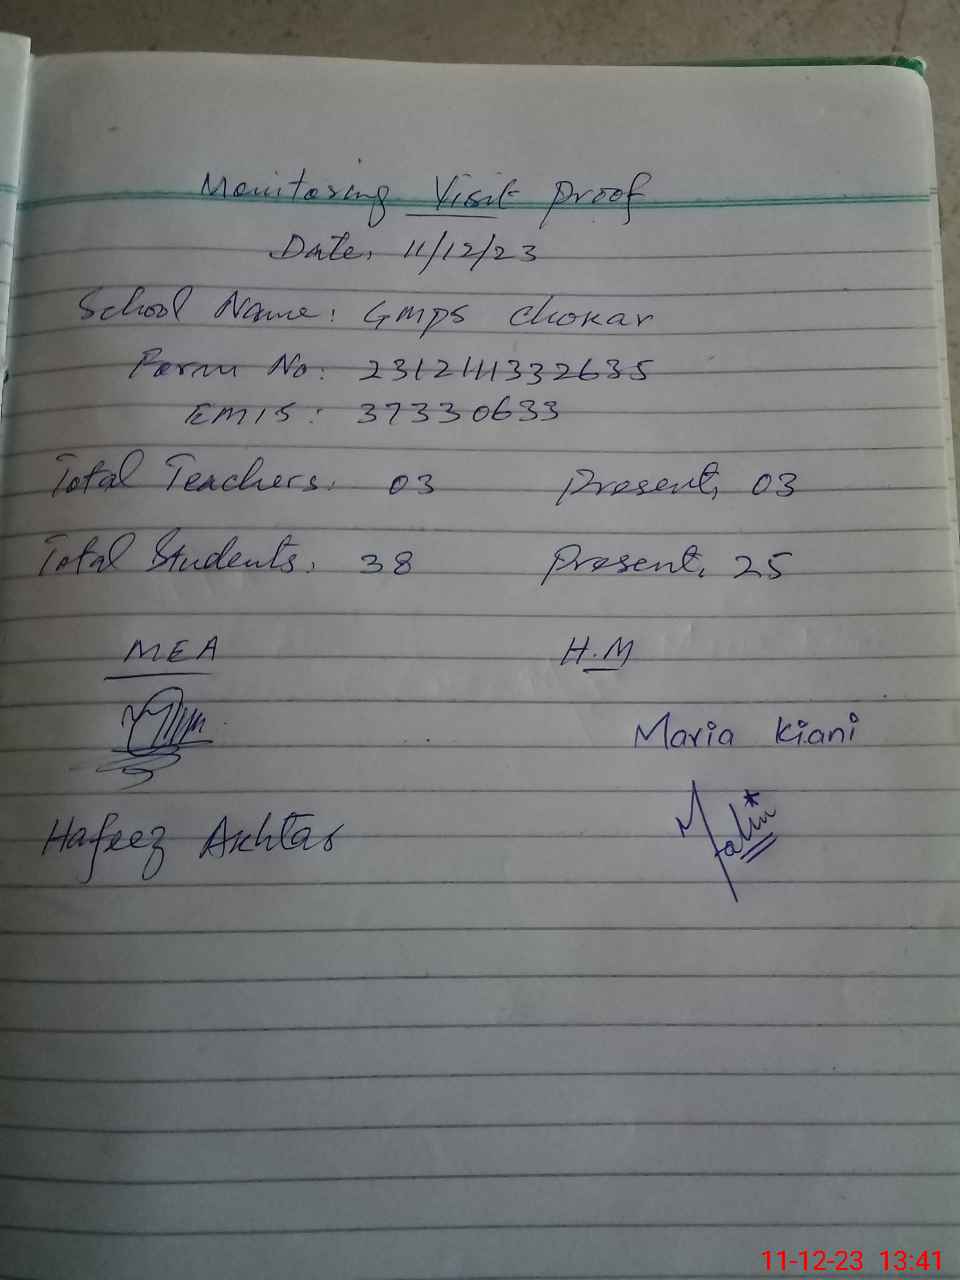 Monitoring Visit Proof
Date, 11/12/23
School Name: GMPS Chokar
Form No: 231211332635
EMIS: 37330633
Total Teachers, 03 Present, 03
Total Students, 38 Present, 25
MEA H.M
Maria Kiani
Hafeez Akhtar
11-12-23 13:41